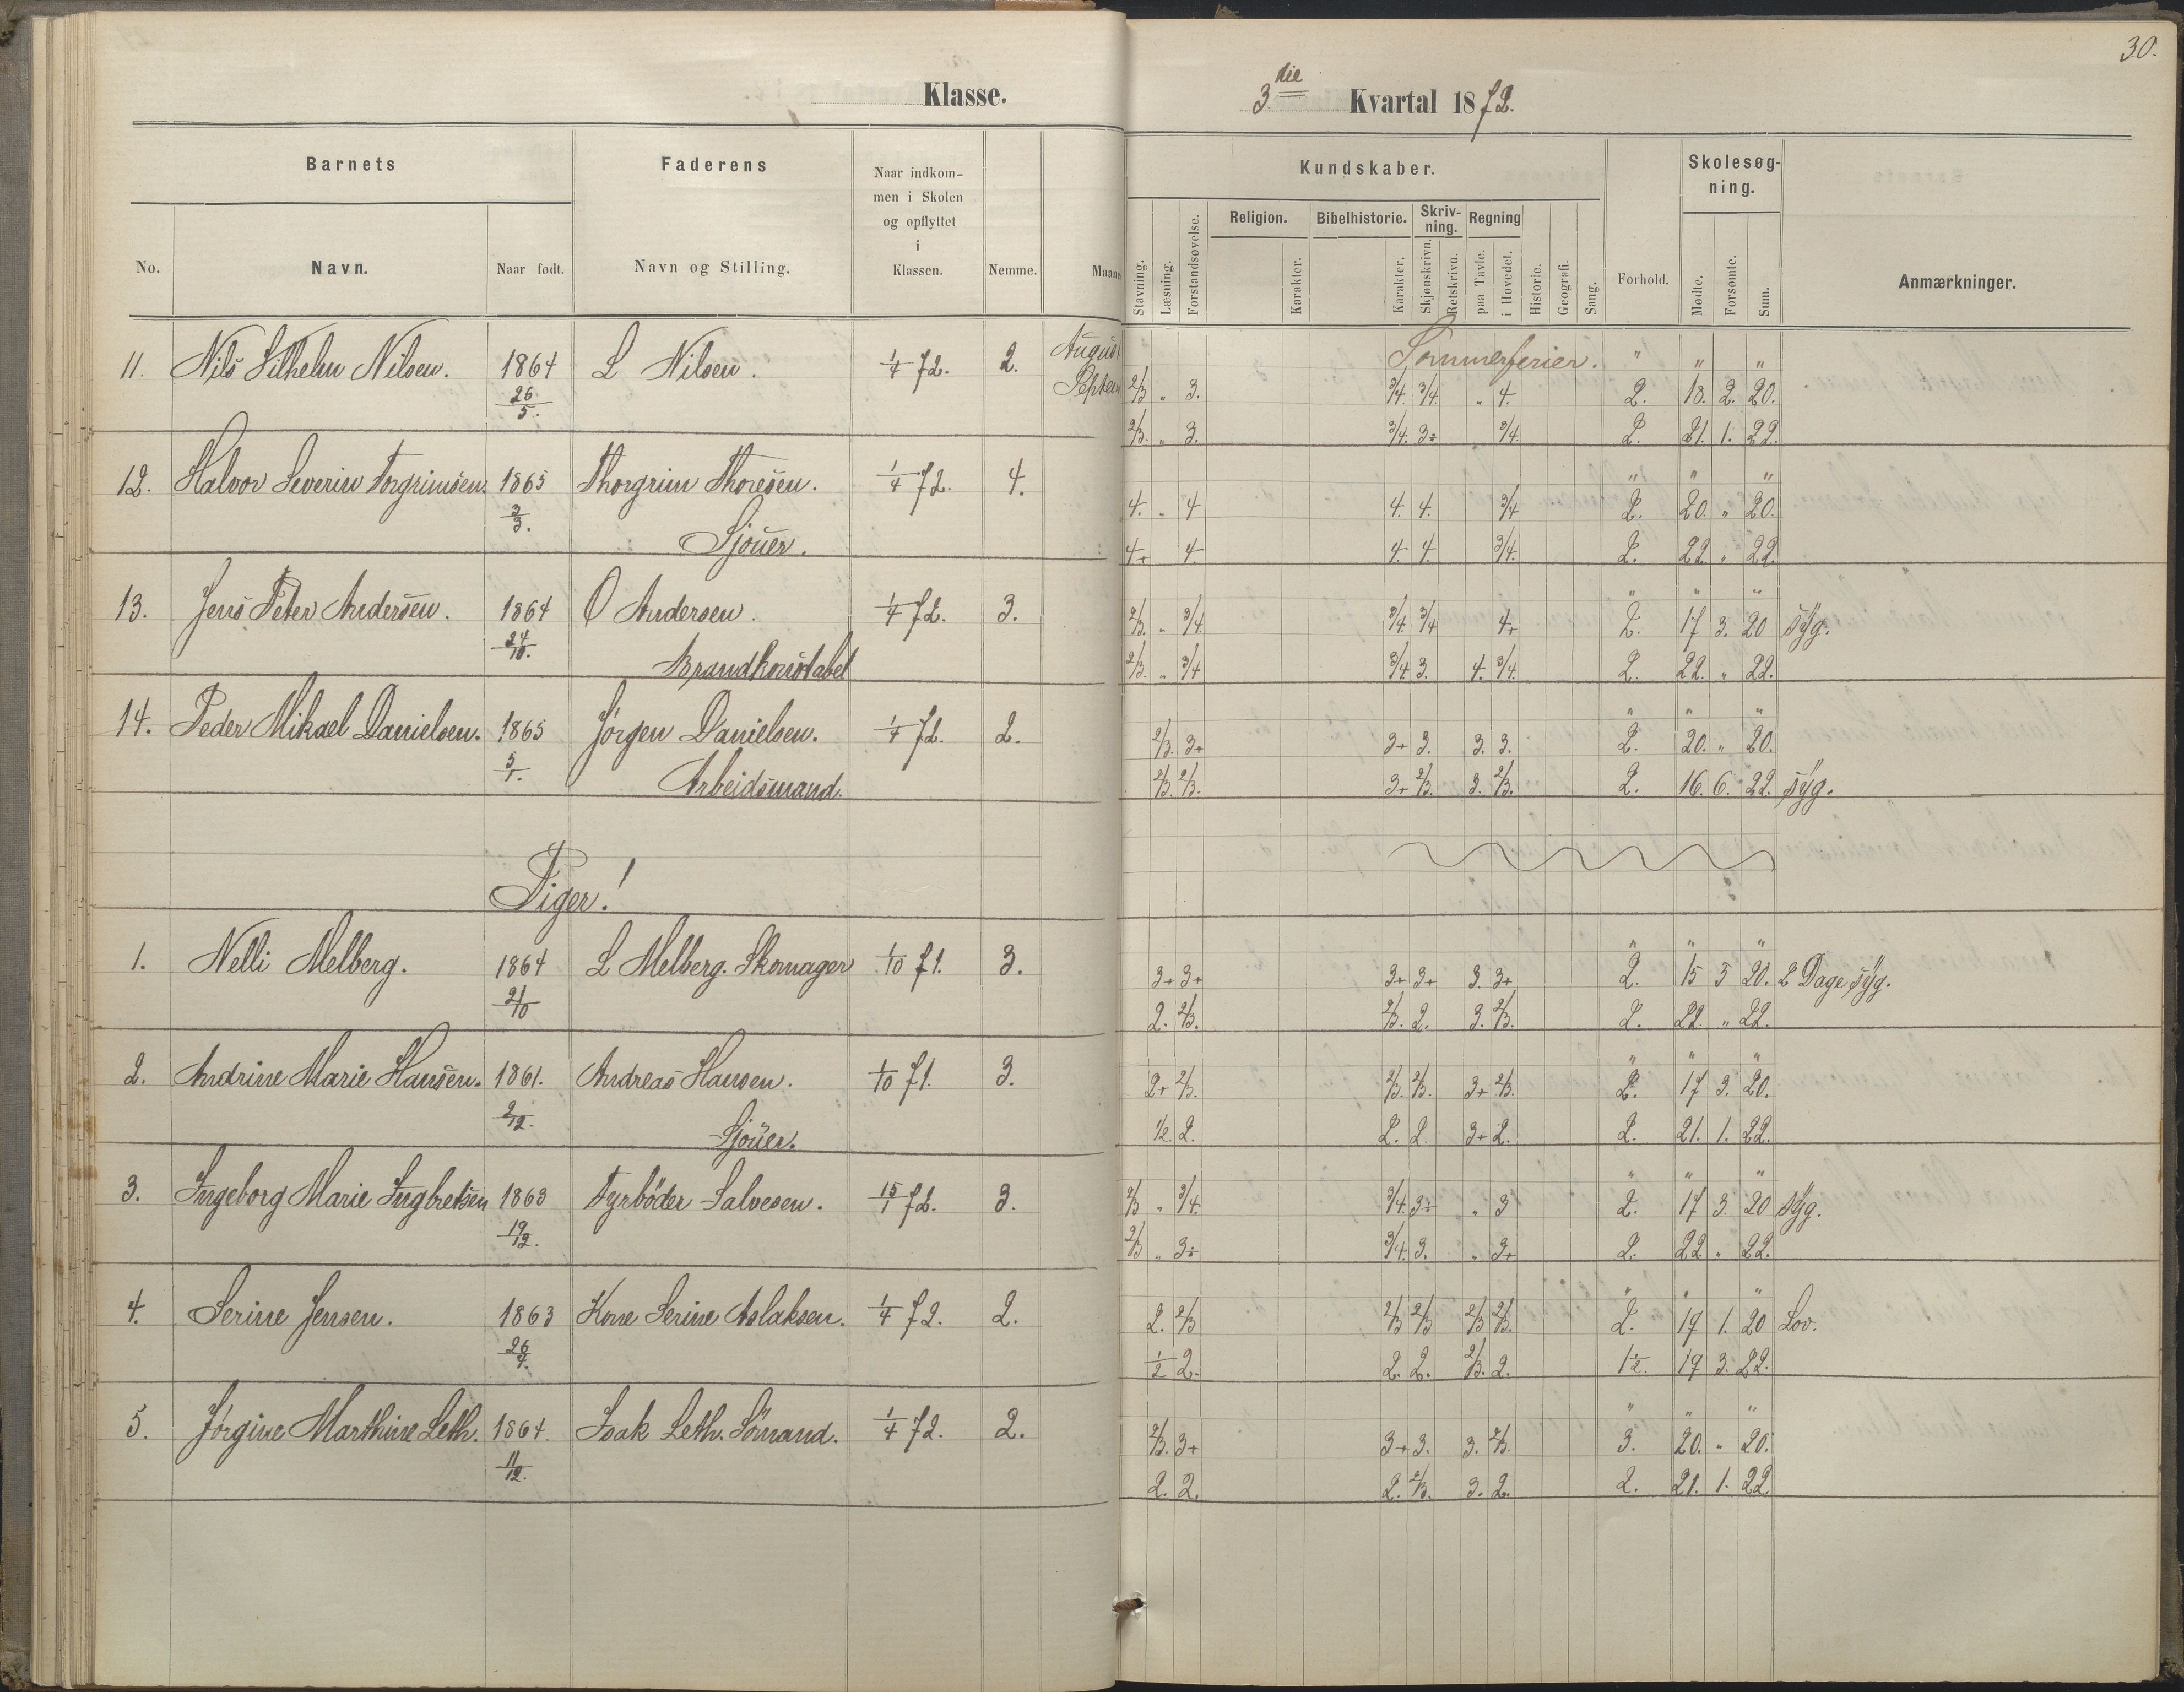 30.
Klasse.
3die Kvartal 1872.
Barnets
Faderens
Naar indkommen i Skolen og opflyttet i Klassen.
Nemme.
Maaned
No.
Navn.
Naar født.
Navn og Stilling.
Kundskaber.
Skolesøgning.
Stavning.
Læsning.
Forstandsøvelse.
Religion.
Karakter.
Bibelhistorie.
Karakter.
Skrivning.
Skjønskrivn.
Retskrivn.
Regning
paa Tavle.
i Hovedet.
Historie.
Geografi.
Sang.
Forhold.
Mødte.
Forsømte.
Sum.
Anmærkninger.
August Sommerferier. " " "
11. Nils Vilhelm Nilsen. 1864 26/5. L Nilsen. 1/4 72. 2.
Septem 2/3 " 3. 3/4. 3/4. " 4. 2. 18. 2. 20.
2/3. " 3. 3/4. 3÷ 3/4. 2. 21. 1. 22.
" " "
12. Halvor Severin Torgrimsen. 1865 3/3. Thorgrim Thoresen. 1/4 72. 4.
Sjouer.
4. " 4 4. 4. 3/4 2. 20. " 20.
4+ 4. 4. 4. 3/4. 2. 22. " 22.
" " "
13. Jens Peter Andersen. 1864 24/10. O Andersen. 1/4 72. 3.
Brandkonstabel
2/3. " 3/4. 3/4 3/4 4+ 2. 17 3. 20 syg.
2/3. " 3/4 3/4 3. 4. 3/4. 2. 22. " 22.
" " "
14. Peder Mikael Danielsen. 1865 5/1. Jörgen Danielsen. 1/4 72. 2.
Arbeidsmand.
2/3. 3+ 3+ 3. 3. 3. 2. 20. " 20.
2/3. 2/3. 3+ 2/3. 3. 2/3. 2. 16. 6. 22. syg.
Piger!
" " "
1. Nelli Melberg. 1864 21/10 L Melberg. Skomager 1/10 71. 3.
3+ 3+ 3+ 3+ 3. 3+ 2. 15 5 20. 2 Dage syg.
2. 2/3. 2/3. 2. 3. 2/3. 2. 22. " 22.
" " "
2. Andrine Marie Hansen. 1861. 2/12. Andreas Hansen. 1/10 71. 3.
Sjouer.
2+ 2/3. 2/3. 2/3. 3+ 2/3. 2. 17 3. 20.
1/2. 2. 2. 2. 3+ 2. 2. 21. 1. 22.
" " "
3. Ingeborg Marie Ingbretsen 1863 19/12. Fyrböder Salvesen. 15/1 72. 3.
2/3 " 3/4. 3/4. 3÷ " 3 2. 17 3. 20 syg.
2/3 " 3÷ 3/4. 3. " 3+ 2. 22. " 22.
" " "
4. Serine Jensen. 1863 26/4. Kone Serine Aslaksen. 1/4 72. 2.
2. 2/3 2/3 2/3 2/3 2/3. 2. 19 1. 20 Lov.
1/2 2. 2. 2. 2/3. 2. 1/2. 19 3. 22.
" " "
5. Jörgine Marthine Leth. 1864. 11/12. Isak Leth. Sömand. 1/4 72. 2.
2/3. 3+ 3+ 3. 3. 2/3. 3. 20. " 20.
2. 2. 2. 2/3. 3. 2. 2. 21. 1. 22.